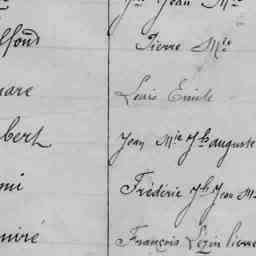 Jean M
lfond Pierre Mie
nare Louis Emile
bert Jean Mie Jh auguste
Fréderic Jh Jean M
miré François Lezin Pierre